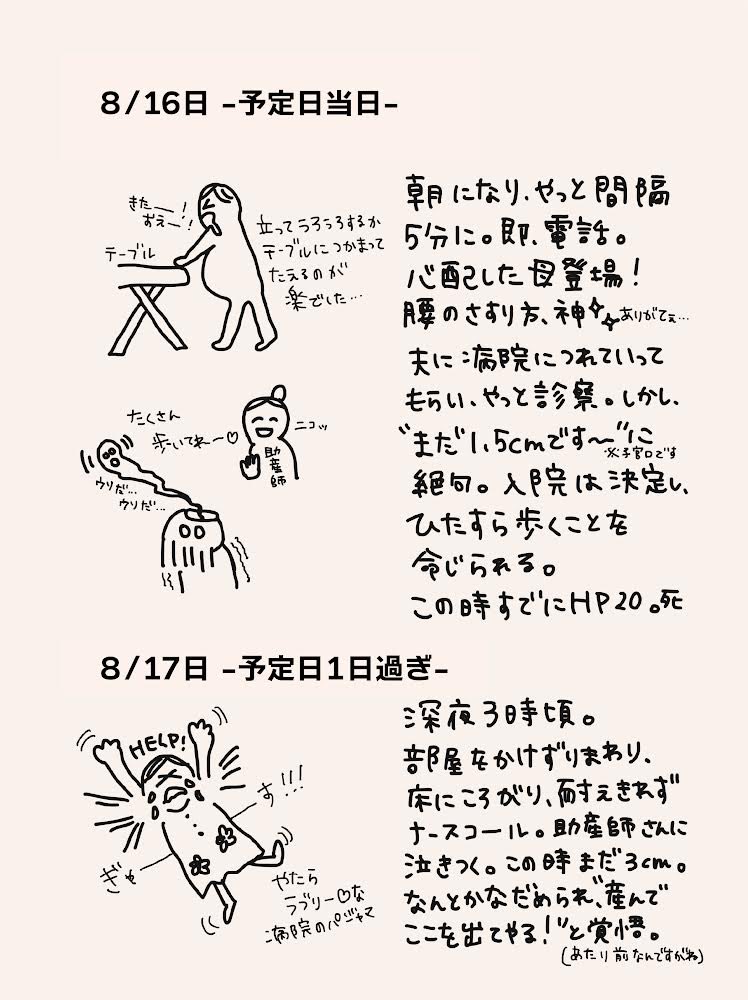 8/16日 -予定日当日-
きたー！
おえー！
テーブル
立ってうろうろするか
テーブルにつかまって
たえるのが
楽でした…
朝になり、やっと間隔
5分に。即、電話。
心配した母登場！
腰のさすり方、神
ありがてぇ…
夫に病院につれていって
もらい、やっと診察。しかし、
"まだ1.5cmです〜"に
※子宮口です
絶句。入院は決定し、
ひたすら歩くことを
命じられる。
この時すでにHP20。死
たくさん
歩いてね〜♡
ニコッ
助産師
ウソだ…
ウソだ…
8/17日 -予定日1日過ぎ-
HELP!
す!!!
ぎゃ
やたら
ラブリー♡な
病院のパジャマ
深夜3時頃。
部屋をかけずりまわり、
床にころがり、耐えきれず
ナースコール。助産師さんに
泣きつく。この時まだ3cm。
なんとかなだめられ、"産んで
ここを出てやる！"と覚悟。
(あたり前なんですがね)